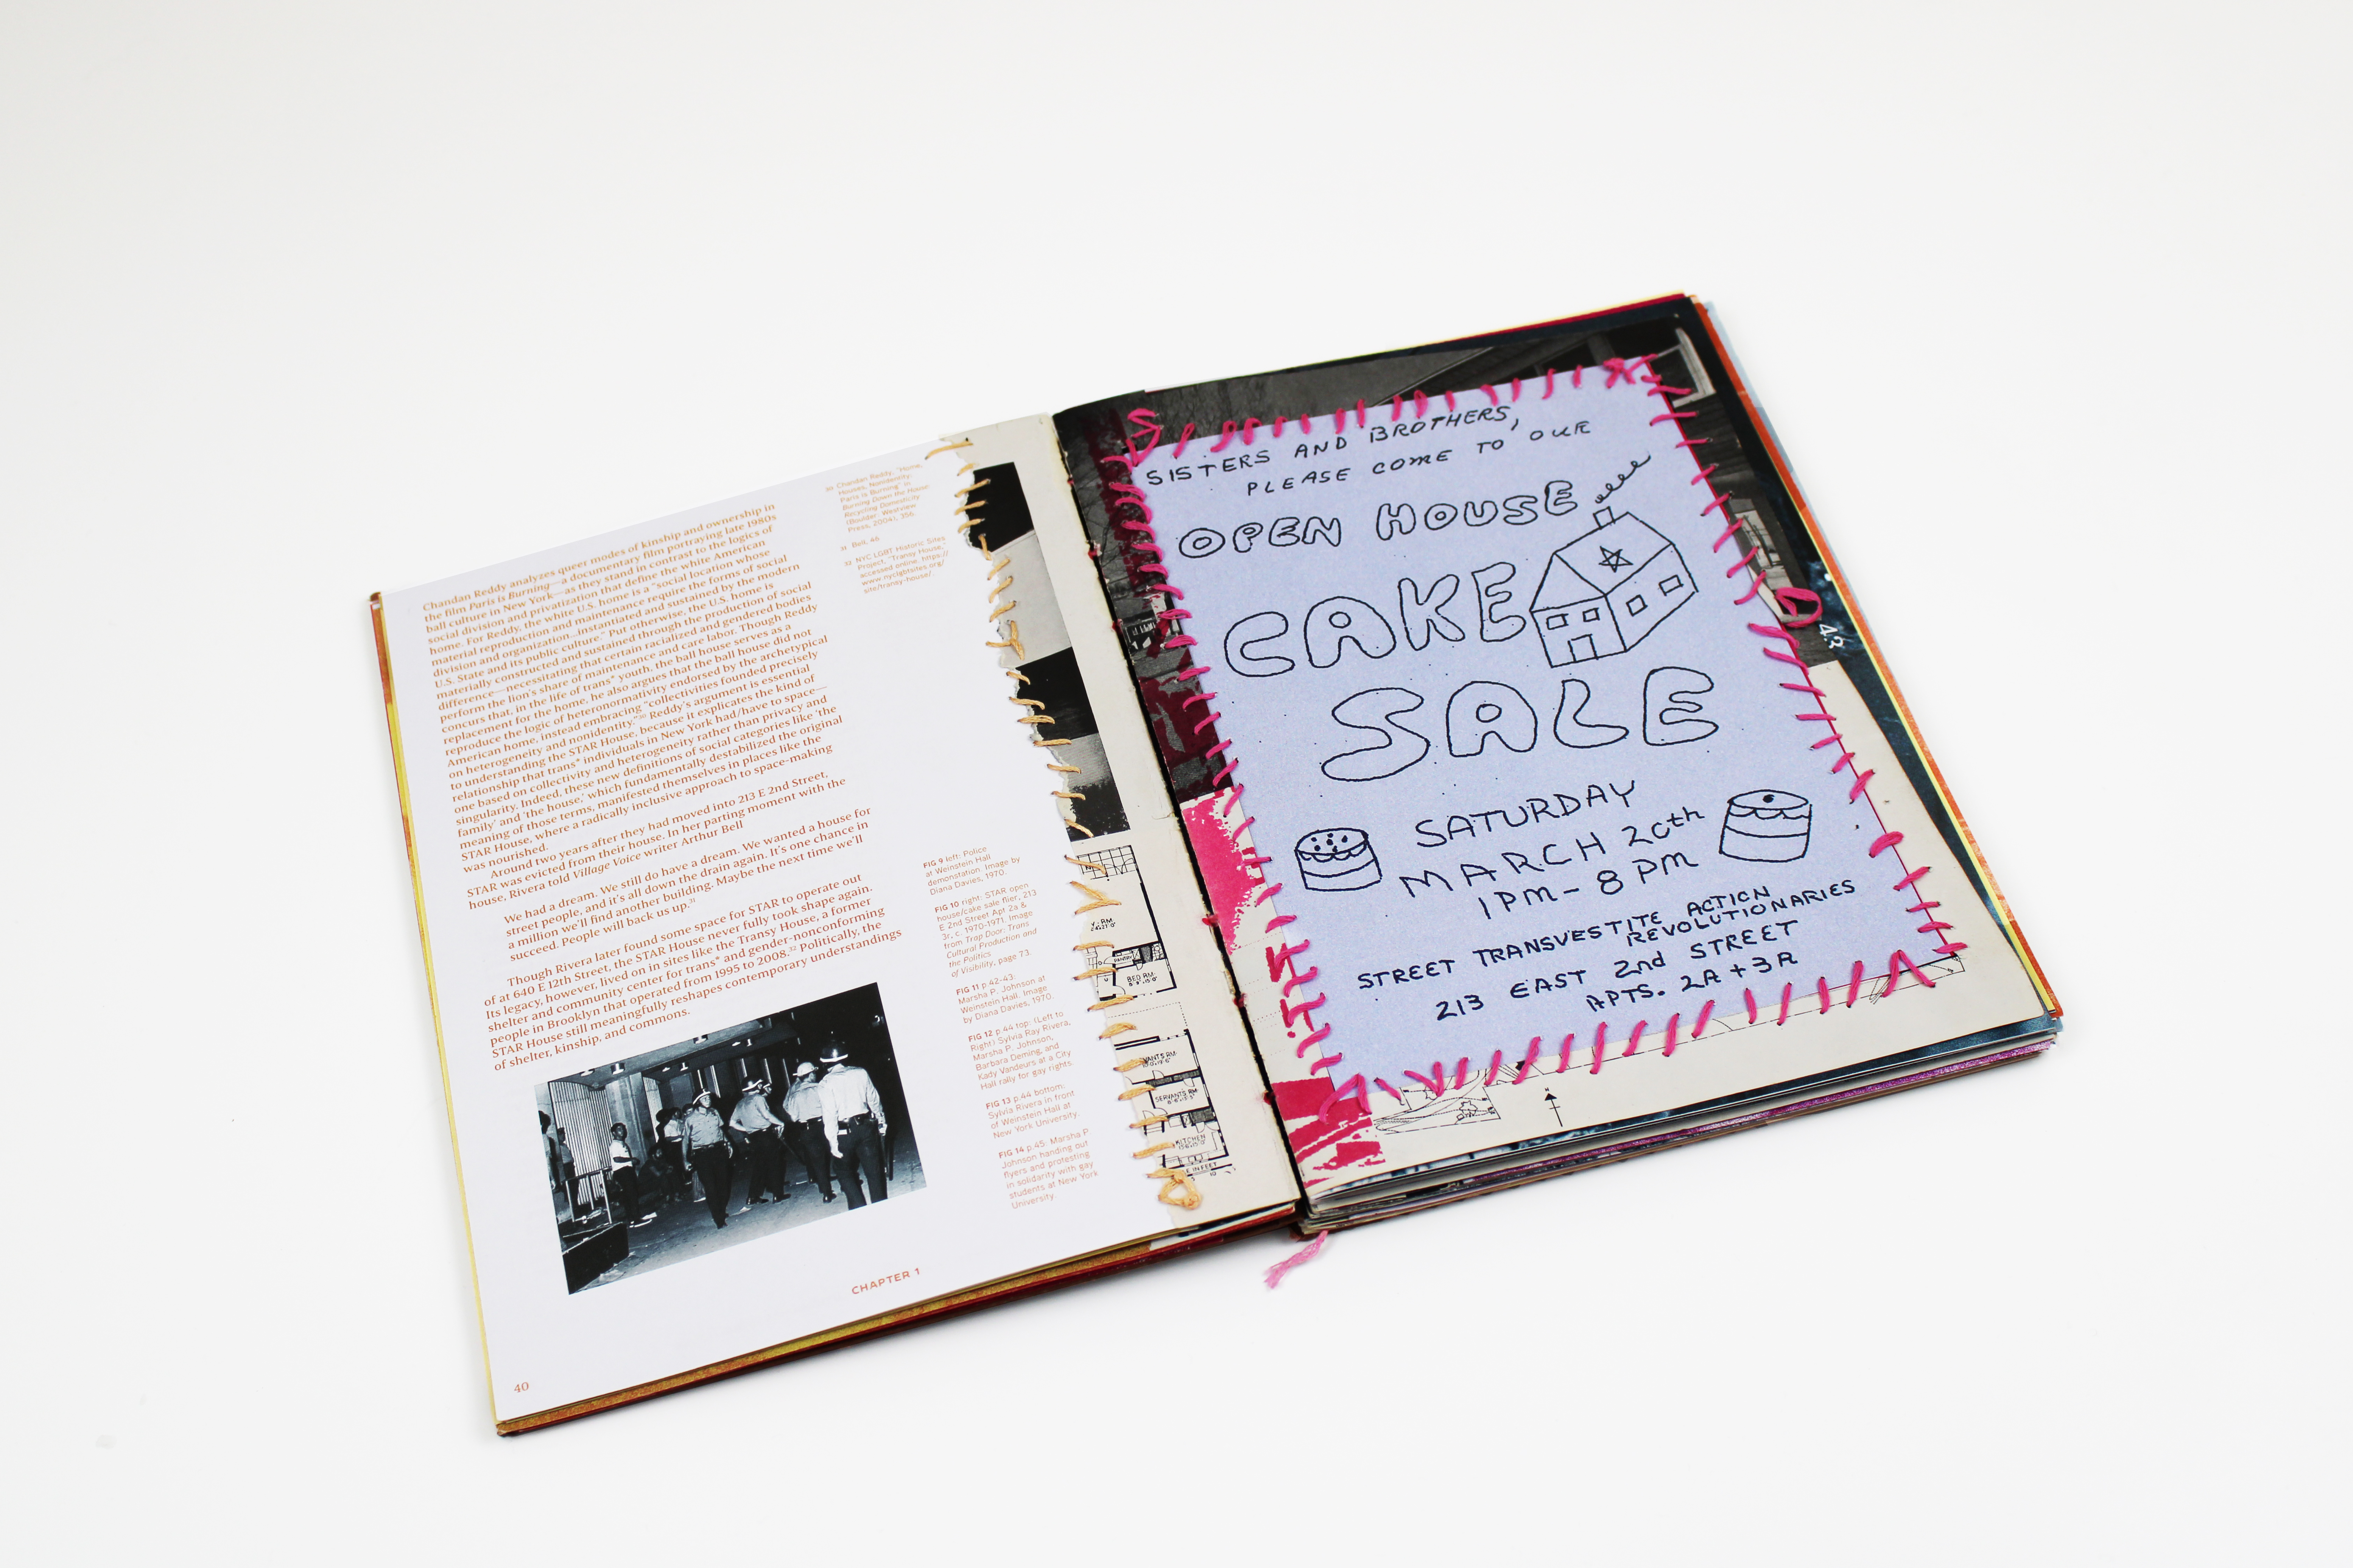 Chandan Reddy analyzes queer modes of kinship and ownership in
the film Paris is Burning—a documentary film portraying late 1980s
ball culture in New York—as they stand in contrast to the logics of
social division and privatization that define the white American
home. For Reddy, the white U.S. home is a "social location whose
material reproduction and maintenance require the forms of social
division and organization...instantiated and sustained by the modern
U.S. State and its public culture." Put otherwise, the U.S. home is
materially constructed and sustained through the production of social
difference—necessitating that certain racialized and gendered bodies
perform the lion's share of maintenance and care labor. Though Reddy
concurs that, in the life of trans* youth, the ball house serves as a
replacement for the home, he also argues that the ball house did not
reproduce the logic of heteronormativity endorsed by the archetypical
American home, instead embracing "collectivities founded precisely
on heterogeneity and nonidentity."30 Reddy's argument is essential
to understanding the STAR House, because it explicates the kind of
relationship that trans* individuals in New York had/have to space—
one based on collectivity and heterogeneity rather than privacy and
singularity. Indeed, these new definitions of social categories like 'the
family' and 'the house,' which fundamentally destabilized the original
meaning of those terms, manifested themselves in places like the
STAR House, where a radically inclusive approach to space-making
was nourished.
Around two years after they had moved into 213 E 2nd Street,
STAR was evicted from their house. In her parting moment with the
house, Rivera told Village Voice writer Arthur Bell
We had a dream. We still do have a dream. We wanted a house for
street people, and it's all down the drain again. It's one chance in
a million we'll find another building. Maybe the next time we'll
succeed. People will back us up.31
Though Rivera later found some space for STAR to operate out
of at 640 E 12th Street, the STAR House never fully took shape again.
Its legacy, however, lived on in sites like the Transy House, a former
shelter and community center for trans* and gender-nonconforming
people in Brooklyn that operated from 1995 to 2008.32 Politically, the
STAR House still meaningfully reshapes contemporary understandings
of shelter, kinship, and commons.
30 Chandan Reddy, "Home,
Houses, Nonidentity:
Paris is Burning" in
Burning Down the House:
Recycling Domesticity
(Boulder: Westview
Press, 2004), 356.
31 Bell, 46
32 NYC LGBT Historic Sites
Project, "Transy House,"
accessed online. https://
www.nyclgbtsites.org/
site/transy-house/.
FIG 9 left: Police
at Weinstein Hall
demonstation. Image by
Diana Davies, 1970.
FIG 10 right: STAR open
house/cake sale flier, 213
E 2nd Street Apt 2a &
3r, c. 1970-1971. Image
from Trap Door: Trans
Cultural Production and
the Politics
of Visibility, page 73.
FIG 11 p.42-43:
Marsha P. Johnson at
Weinstein Hall. Image
by Diana Davies, 1970.
FIG 12 p.44 top: (Left to
Right) Sylvia Ray Rivera,
Marsha P. Johnson,
Barbara Deming, and
Kady Vandeurs at a City
Hall rally for gay rights.
FIG 13 p.44 bottom:
Sylvia Rivera in front
of Weinstein Hall at
New York University.
FIG 14 p.45: Marsha P
Johnson handing out
flyers and protesting
in solidarity with gay
students at New York
University.
CHAPTER 1
40
PANTRY
BED RM.
SERVANTS RM.
KITCHEN
SISTERS AND BROTHERS,
PLEASE COME TO OUR
OPEN HOUSE
CAKE
SALE
SATURDAY
MARCH 20th
1PM - 8 PM
STREET TRANSVESTITE ACTION
REVOLUTIONARIES
213 EAST 2nd STREET
APTS. 2A + 3R
43
N